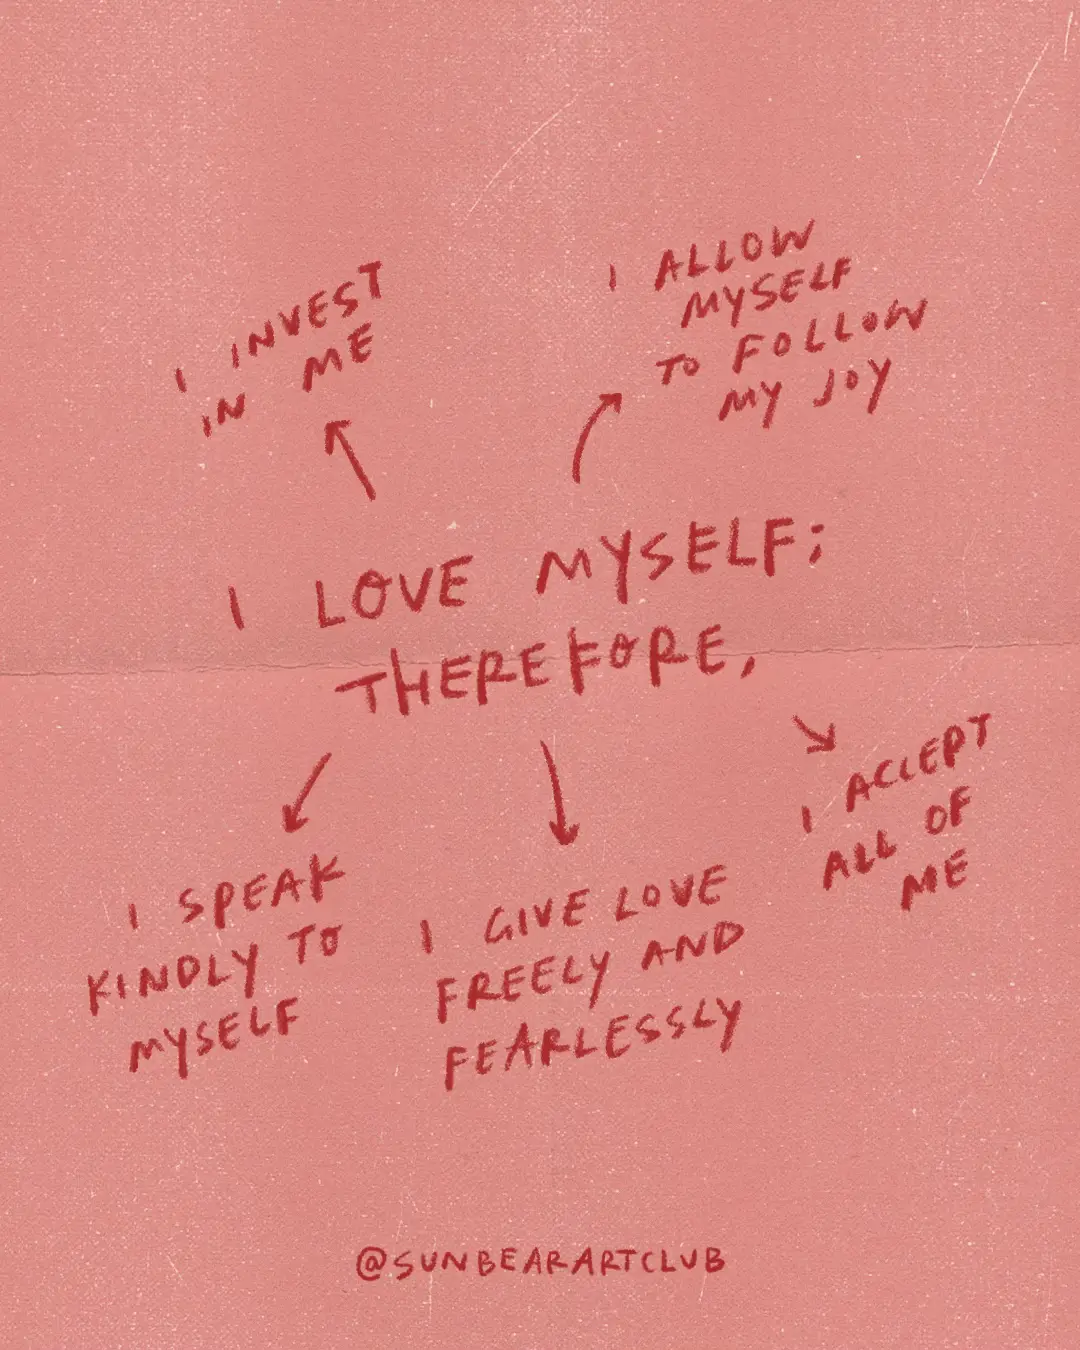 I INVEST
IN ME
I ALLOW
MYSELF
TO FOLLOW
MY JOY
I LOVE MYSELF;
THEREFORE,
I SPEAK
KINDLY TO
MYSELF
I GIVE LOVE
FREELY AND
FEARLESSLY
I ACCEPT
ALL OF
ME
@SUNBEARARTCLUB